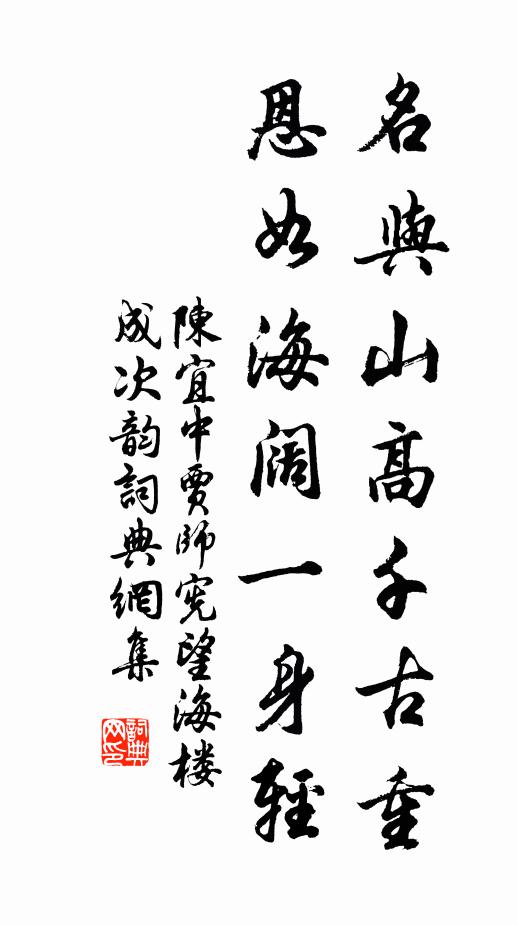 名與山高千古重
恩如海阔一身輕
陳宜中賈師宪望海楼
成次韵詞典網集
詞典网印